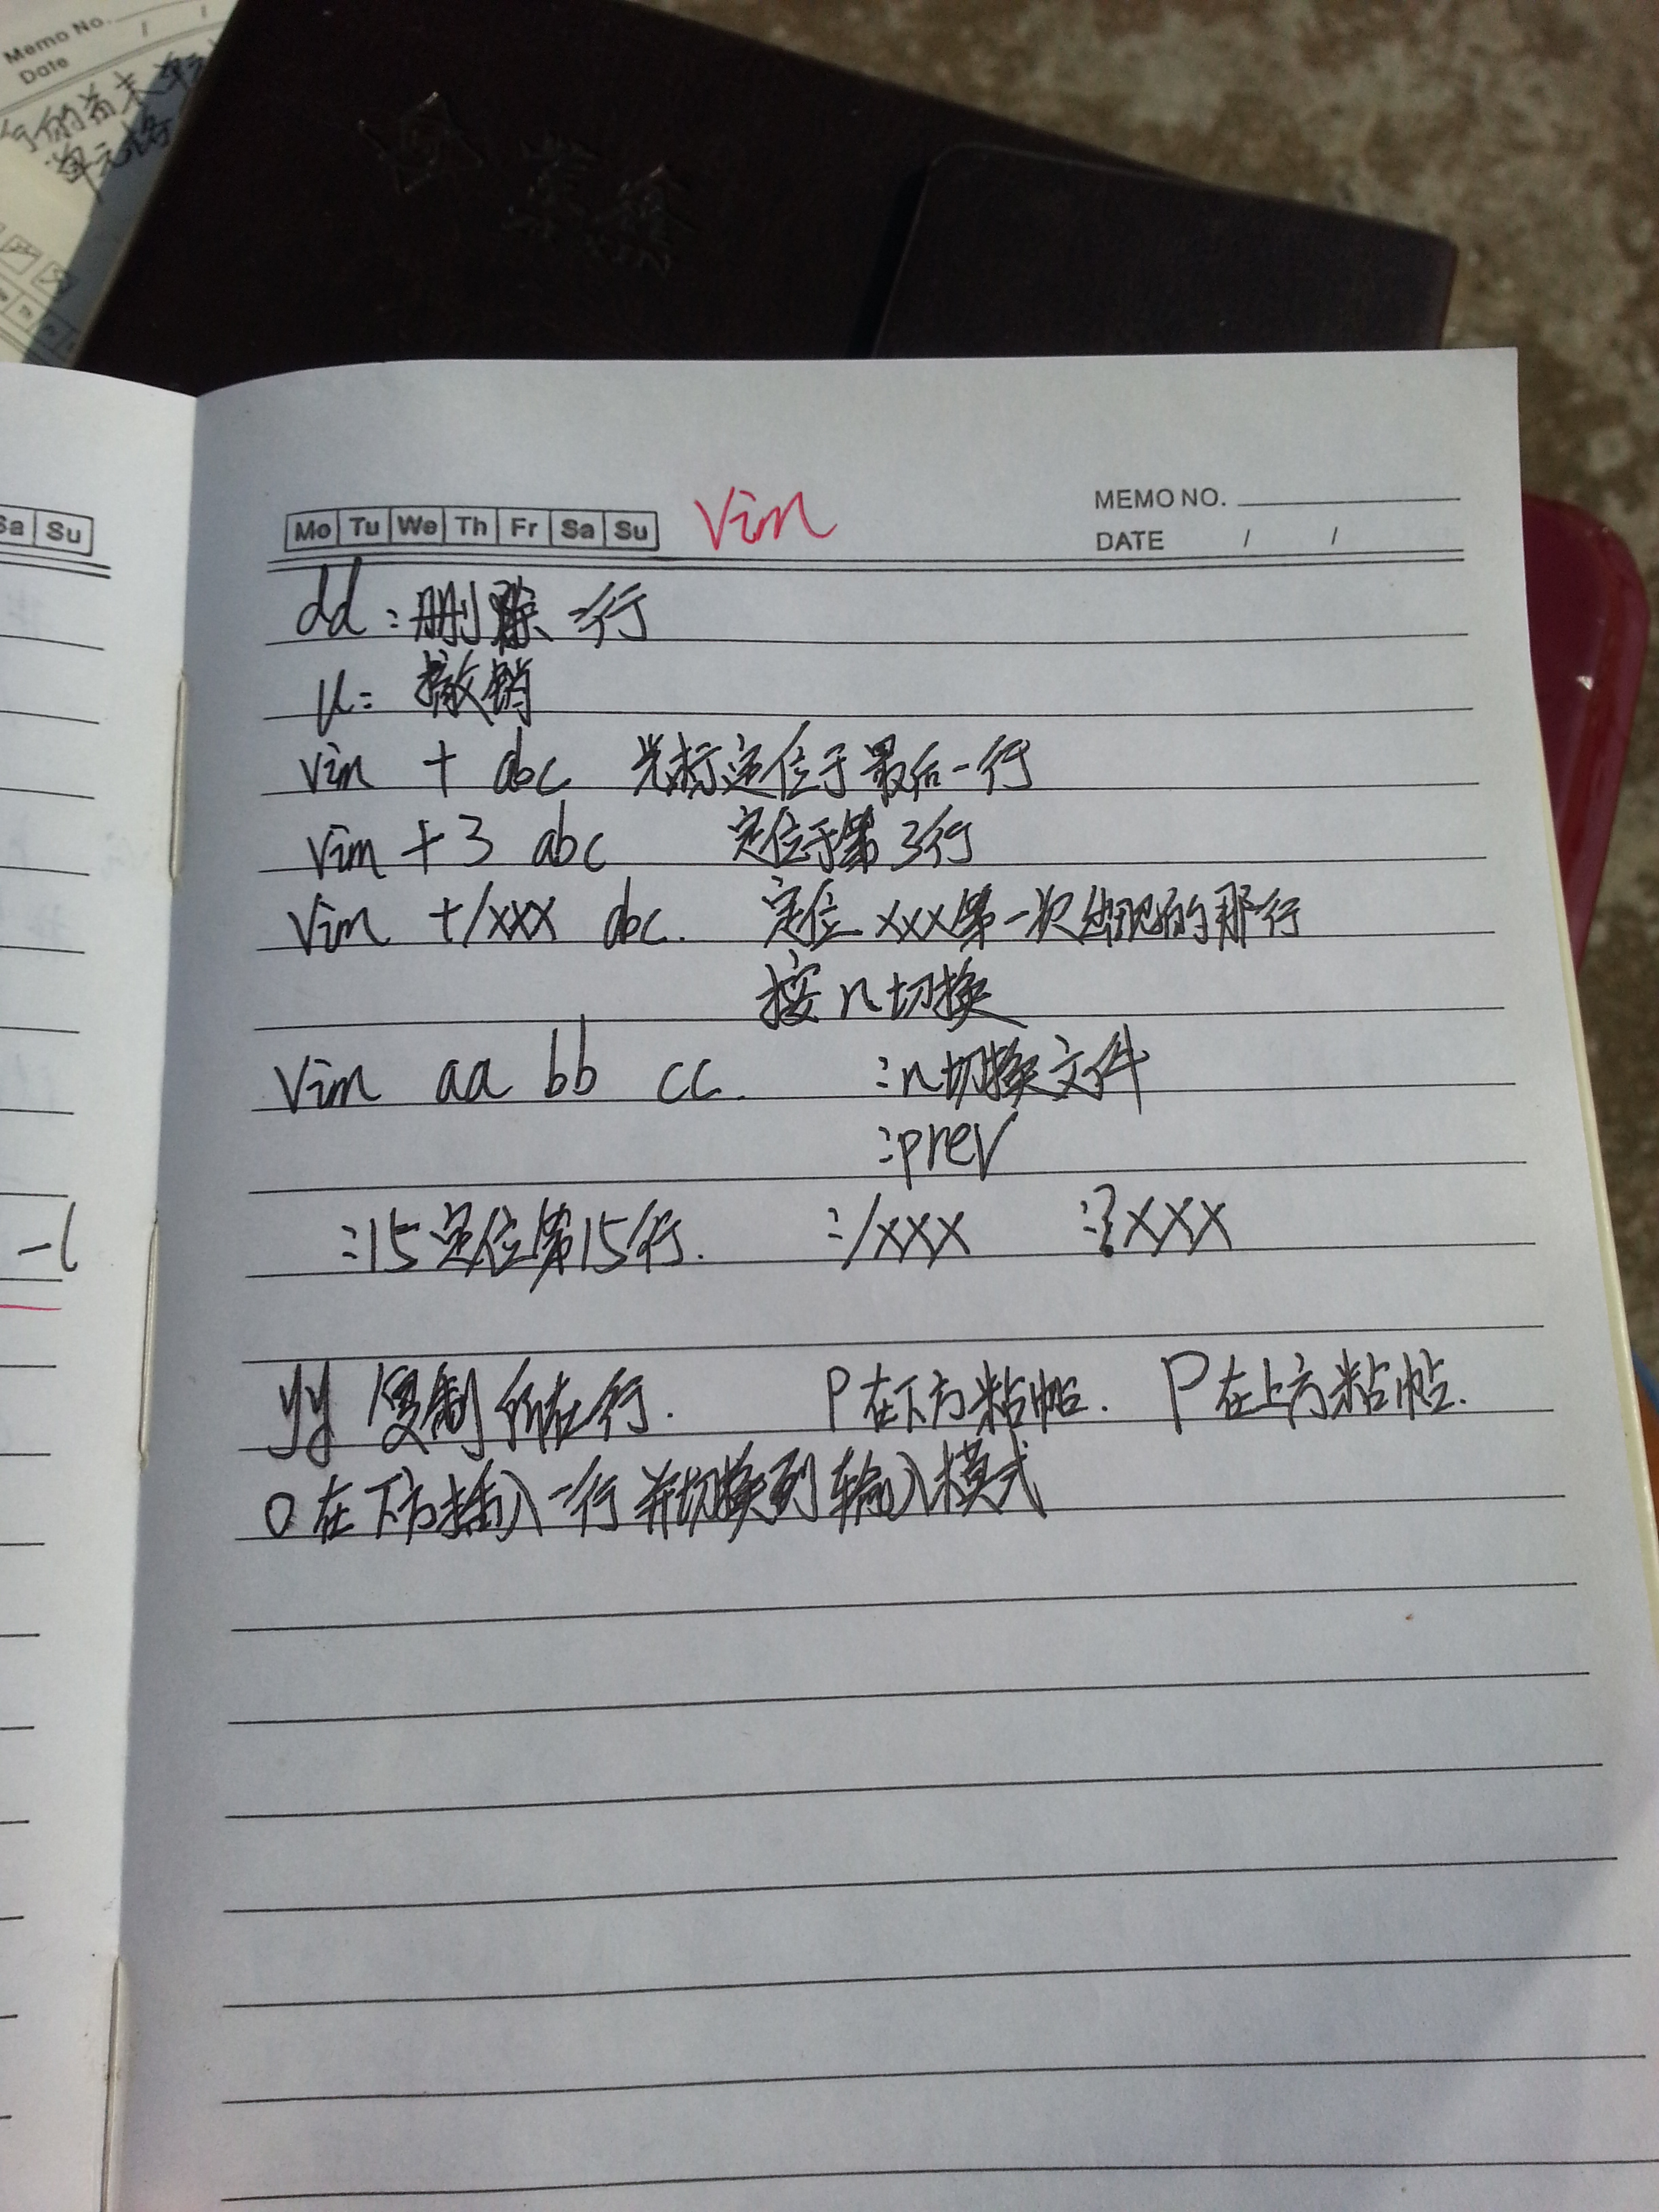 Memo No. / /
Date
单元格
Sa Su
Mo Tu We Th Fr Sa Su Vim MEMO NO.
DATE / /
dd:删除一行
u: 撤销
vim + abc 光标定位于最后一行
vim +3 abc 定位于第3行
vim +/xxx abc. 定位xxx第一次出现的那行
按n切换
vim aa bb cc. :n切换文件
:prev
-l
:15定位第15行. :/xxx :?xxx
yy 复制所在行. p在下方粘帖. P在上方粘帖.
o在下方插入一行并切换到输入模式